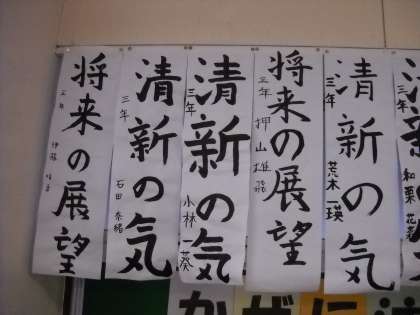 清新の気
三年
荒木一瑛
将来の展望
三年
押山雄
清新の気
三年
小林一葵
清新の気
三年
石田奈緒
将来の展望
三年
伊藤
和栗花
かがに